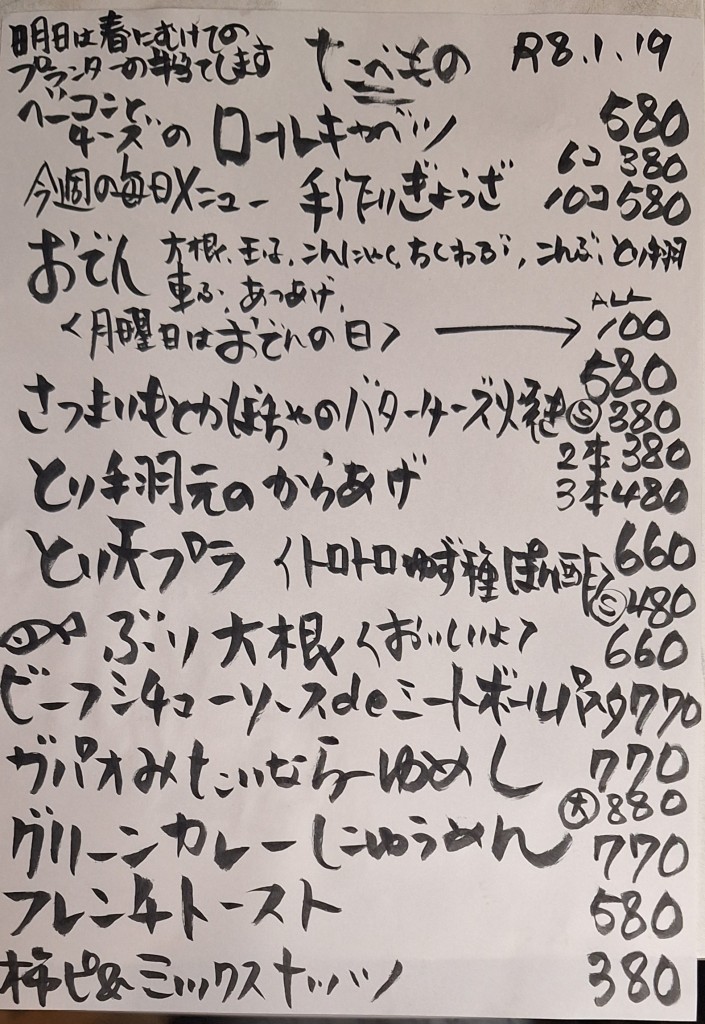 明日は春にむけての
プランターの手当てします
たべもの R8.1.19
ベーコンと
チーズの ロールキャベツ 580
今週の毎日メニュー 手作りぎょうざ 6コ 380
10コ 580
おでん 大根、玉子、こんにゃく、ちくわぶ、こんぶ、とり手羽
車ふ、あつあげ、
〈月曜日はおでんの日〉 → ALL 100
580
さつまいもとかぼちゃのバターチーズ焼き Ⓢ 380
とり手羽元のからあげ 2本 380
3本 480
とり天プラ 〈トロトロゆず種ぽん酢〉 660
Ⓢ 480
ぶり大根〈おいしいよ〉 660
ビーフシチューソースdeミートボールパスタ 770
ガパオみたいならーゆめし 770
㊅ 880
グリーンカレーにゅうめん 770
フレンチトースト 580
柿ピ&ミックスナッツ 380